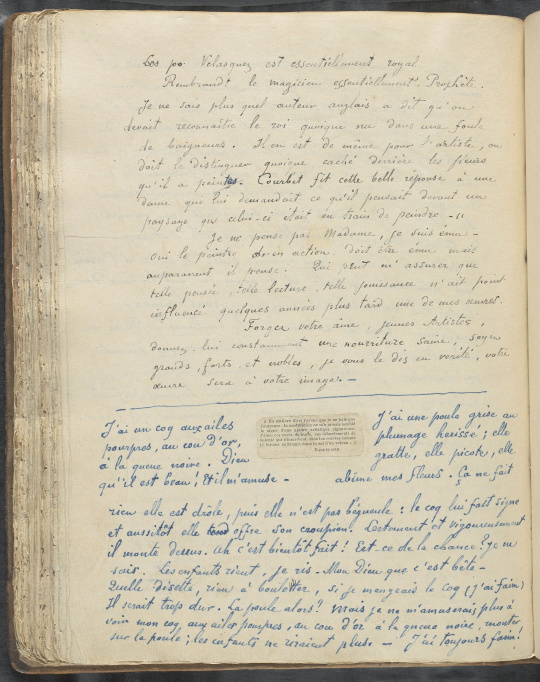 Les po Vélasquez est essentiellement royal
Rembrandt le magicien essentiellement Prophète.
Je ne sais plus quel auteur anglais a dit qu'on
devait reconnaître le roi quoique nu dans une foule
de baigneurs. Il en est de même pour l'artiste, on
doit le distinguer quoique caché derrière les fleurs
qu'il a peintes. Courbet fit cette belle réponse à une
dame qui lui demandait ce qu'il pensait devant un
paysage que celui-ci était en train de peindre -
Je ne pense pas Madame, je suis ému -
Oui le peintre en action doit être ému mais
auparavant il pense. Qui peut m'assurer que
telle pensée, telle lecture, telle jouissance n'ait point
influencé quelques années plus tard une de mes œuvres.
Forgez votre âme, jeunes Artistes,
donnez-lui constamment une nourriture saine, soyez
grands, forts et nobles, je vous le dis en vérité, votre
œuvre sera à votre image -
J'ai un coq aux ailes
pourpres, au cou d'or,
à la queue noire. Dieu
qu'il est beau! Et il m'amuse -
J'ai une poule grise au
plumage herissé; elle
gratte, elle picote, elle
abîme mes fleurs. Ça ne fait
rien elle est drôle, puis elle n'est pas bégueule: le coq lui fait signe
et aussitôt elle offre son croupion. Lestement et vigoureusement
il monte dessus. Ah c'est bientôt fait! Est-ce de la chance? Je ne
sais. Les enfants rient, je ris - Mon Dieu que c'est bête -
Quelle disette, rien à boulotter, si je mangeais le coq (j'ai faim)
Il serait trop dur. La poule alors? Mais je ne m'amuserais plus à
voir mon coq aux ailes pourpres, au cou d'or à la queue noire, monter
sur la poule; les enfants ne riraient plus - J'ai toujours faim!